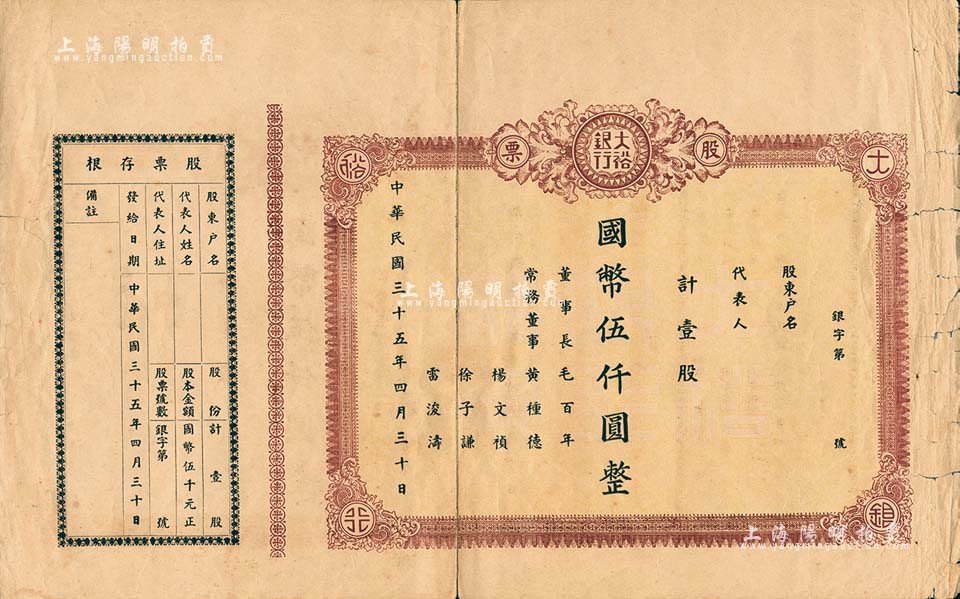 上海陽明拍賣
www.yangmingauction.com
股票
大裕銀行
大裕銀行
銀字第　號
股東户名
代表人
計壹股
國幣伍仟圓整
董事長毛百年
常務董事黄種德
楊文禎
徐子謙
雷浚濤
中華民國三十五年四月三十日
股票存根
股東户名
股份計壹股
代表人姓名
股本金額國幣伍千元正
代表人住址
股票號數銀字第　號
發給日期中華民國三十五年四月三十日
備註
上海陽明拍賣
www.yangmingauction.com
上海陽明拍賣
www.yangmingauction.com